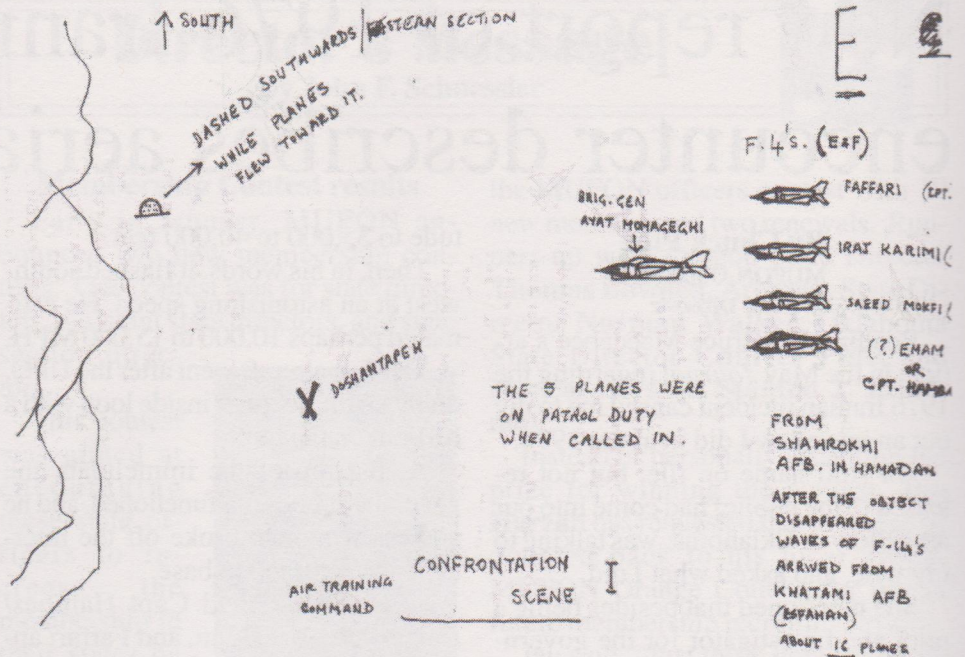 SOUTH
DASHED SOUTHWARDS
WHILE PLANES
FLEW TOWARD IT.
SECTION
E
F.4's. (E&F)
FAFFARI (CPT.
IRAJ KARIMI (
SAEED MOKFI (
(?) EMAM
OR
CPT.
BRIG. GEN
AYAT MOHAGEGHI
DOSHANTAPEH
THE 5 PLANES WERE
ON PATROL DUTY
WHEN CALLED IN.
FROM
SHAHROKHI
AFB. IN HAMADAN
AFTER THE OBJECT
DISAPPEARED
WAVES OF F-14's
ARRIVED FROM
KHATAMI AFB
(ESFAHAN)
ABOUT 16 PLANES
AIR TRAINING
COMMAND
CONFRONTATION
SCENE
I